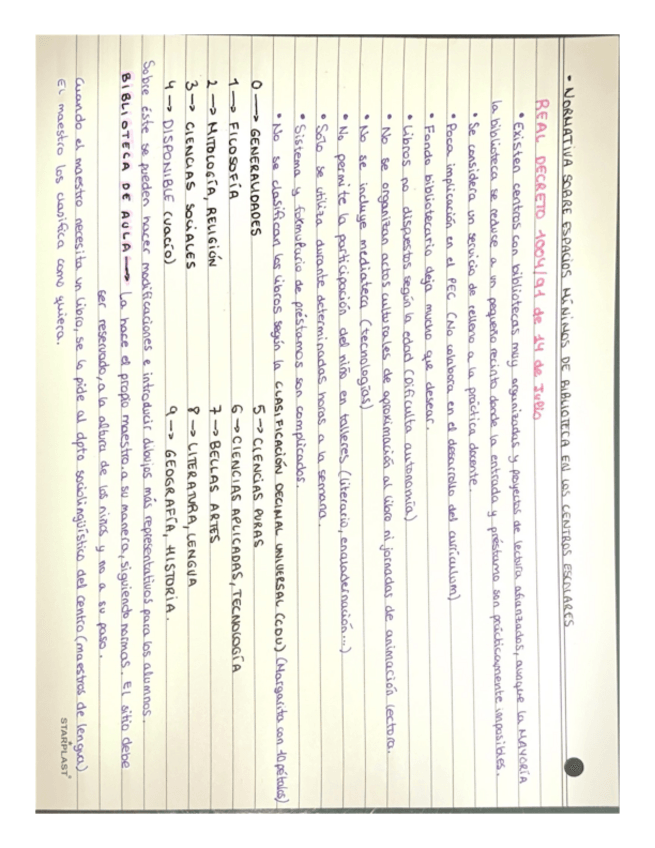 • NORMATIVA SOBRE ESPACIOS MÍNIMOS DE BIBLIOTECA EN LOS CENTROS ESCOLARES
REAL DECRETO 1004/91 de 14 de Julio
• Existen centros con bibliotecas muy organizadas y proyectos de lectura afianzados, aunque la MAYORÍA
la biblioteca se reduce a un pequeño recinto donde la entrada y préstamo son prácticamente imposibles.
• Se considera un servicio de relleno a la práctica docente.
• Poca implicación en el PEC (No colabora en el desarrollo del currículum)
• Fondo bibliotecario deja mucho que desear.
• Libros no dispuestos según la edad (Dificulta autonomía)
• No se organizan actos culturales de aproximación al libro ni jornadas de animación lectora.
• No se incluye mediateca (tecnologías)
• No permite la participación del niño en talleres (literario, encuadernación...)
• Solo se utiliza durante determinadas horas a la semana.
• Sistema y formulario de préstamos son complicados.
• No se clasifican los libros según la CLASIFICACIÓN DECIMAL UNIVERSAL (CDU) (Margarita con 10 pétalos)
0 → GENERALIDADES 5 → CIENCIAS PURAS
1 → FILOSOFÍA 6 → CIENCIAS APLICADAS, TECNOLOGÍA
2 → MITOLOGÍA, RELIGIÓN 7 → BELLAS ARTES
3 → CIENCIAS SOCIALES 8 → LITERATURA, LENGUA
4 → DISPONIBLE (vacío) 9 → GEOGRAFÍA, HISTORIA.
Sobre éste se pueden hacer modificaciones e introducir dibujos más representativos para los alumnos.
BIBLIOTECA DE AULA → La hace el propio maestro, a su manera, siguiendo normas. El sitio debe
ser reservado, a la altura de los niños y no a su paso.
Cuando el maestro necesita un libro, se lo pide al dpto sociolingüístico del centro (maestros de lengua)
El maestro los clasifica como quiera.
STARPLAST